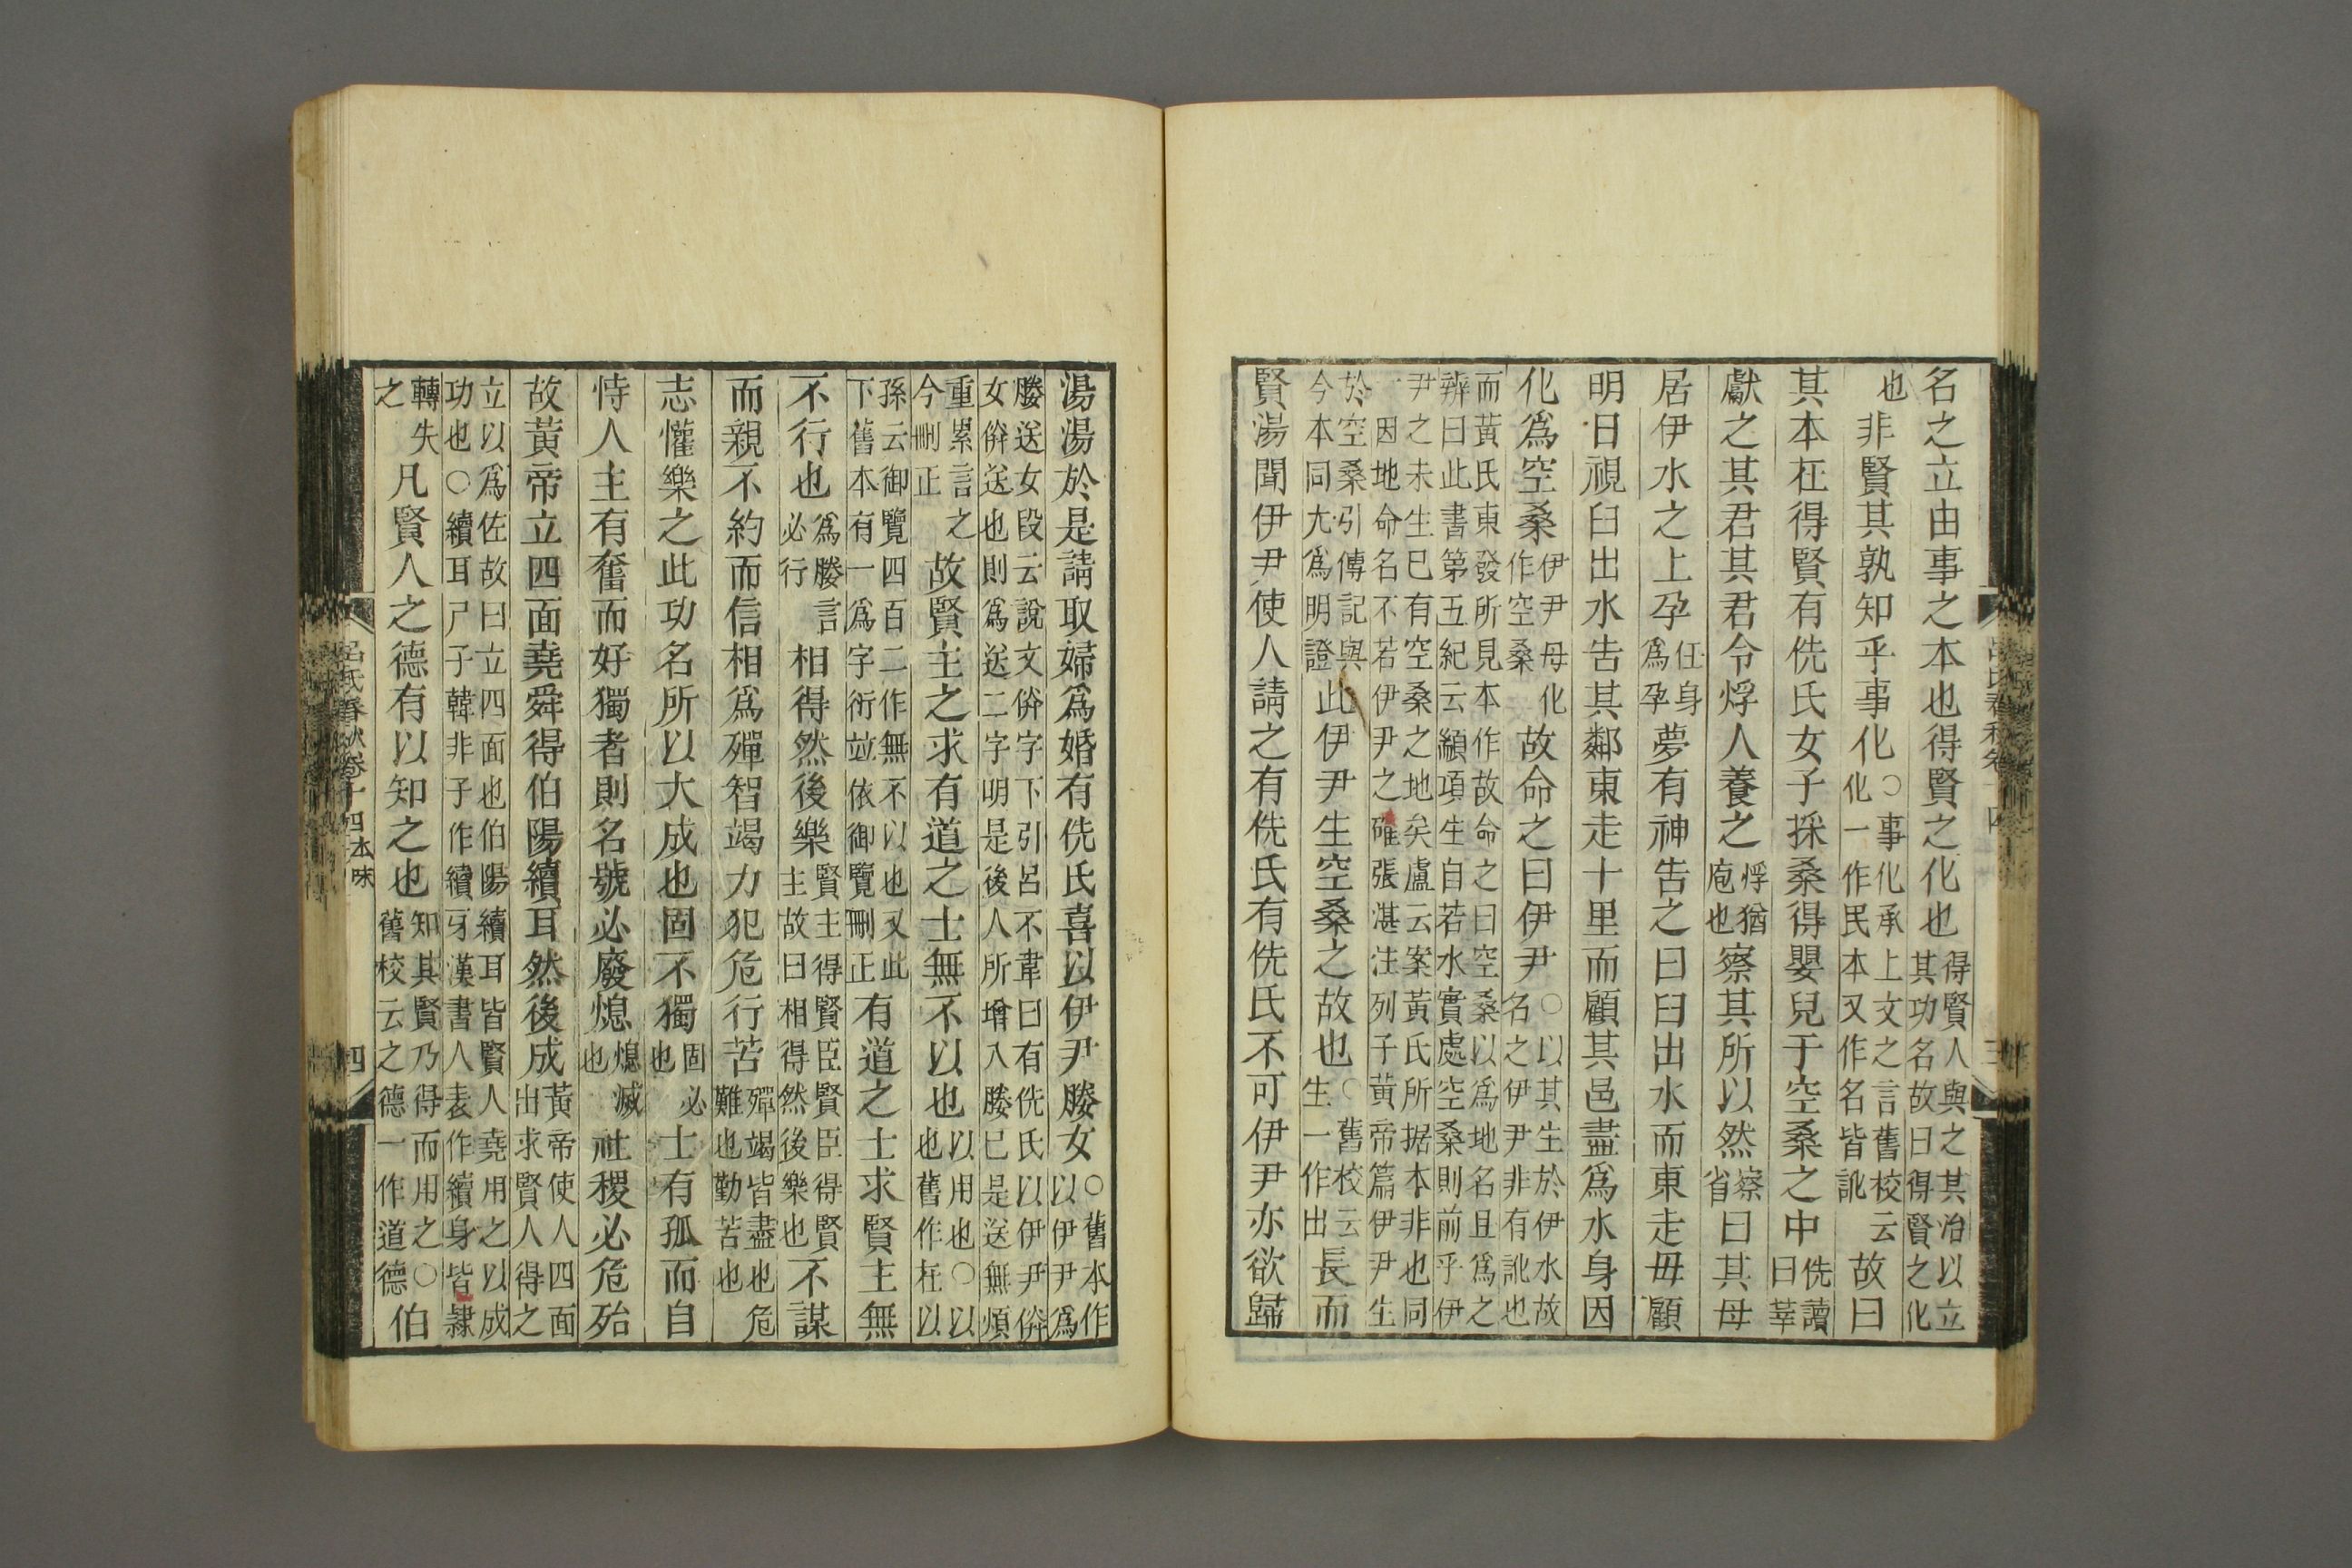 名之立由事之本也得賢之化也得賢人與之其治以立其功名故曰得賢之化
也非賢其孰知乎事化○事化承上文之言舊校云化一作民本又作名皆訛故曰
其本在得賢有侁氏女子採桑得嬰兒于空桑之中侁讀曰莘
獻之其君其君令烰人養之烰猶庖也察其所以然察省曰其母
居伊水之上孕任身爲孕夢有神告之曰臼出水而東走毋顧
明日視臼出水告其鄰東走十里而顧其邑盡爲水身因
化爲空桑伊尹母化作空桑故命之曰伊尹○以其生於伊水故名之伊尹非有訛也
而黃氏東發所見本作故命之曰空桑以爲地名且爲之
辨曰此書第五紀云顓頊生自若水實處空桑則前乎伊
尹之未生已有空桑之地矣盧云案黃氏所据本非也同
一因地命名不若伊尹之確張湛注列子黃帝篇伊尹生
於空桑引傳記與今本同尤爲明證此伊尹生空桑之故也○舊校云生一作出長而
賢湯聞伊尹使人請之有侁氏有侁氏不可伊尹亦欲歸
湯湯於是請取婦爲婚有侁氏喜以伊尹媵女○舊本作以伊尹爲
媵送女段云說文㑞字下引呂不韋曰有侁氏以伊尹㑞
女㑞送也則爲送二字明是後人所增入媵已是送無煩
重累言之今刪正故賢主之求有道之士無不以也以用也○以也舊作在以
孫云御覽四百二作無不以也又此下舊本有一爲字衍竝依御覽刪正有道之士求賢主無
不行也爲媵言必行相得然後樂賢主得賢臣賢臣得賢主故曰相得然後樂也不謀
而親不約而信相爲殫智竭力犯危行苦殫竭皆盡也危難也勤苦也
志懽樂之此功名所以大成也固不獨固必也士有孤而自
恃人主有奮而好獨者則名號必廢熄熄滅也社稷必危殆
故黃帝立四面堯舜得伯陽續耳然後成黃帝使人四面出求賢人得之
立以爲佐故曰立四面也伯陽續耳皆賢人堯用之以成
功也○續耳尸子韓非子作續牙漢書人表作續身皆隸
轉失之凡賢人之德有以知之也知其賢乃得而用之○舊校云之德一作道德伯
呂氏春秋卷十四本味 四